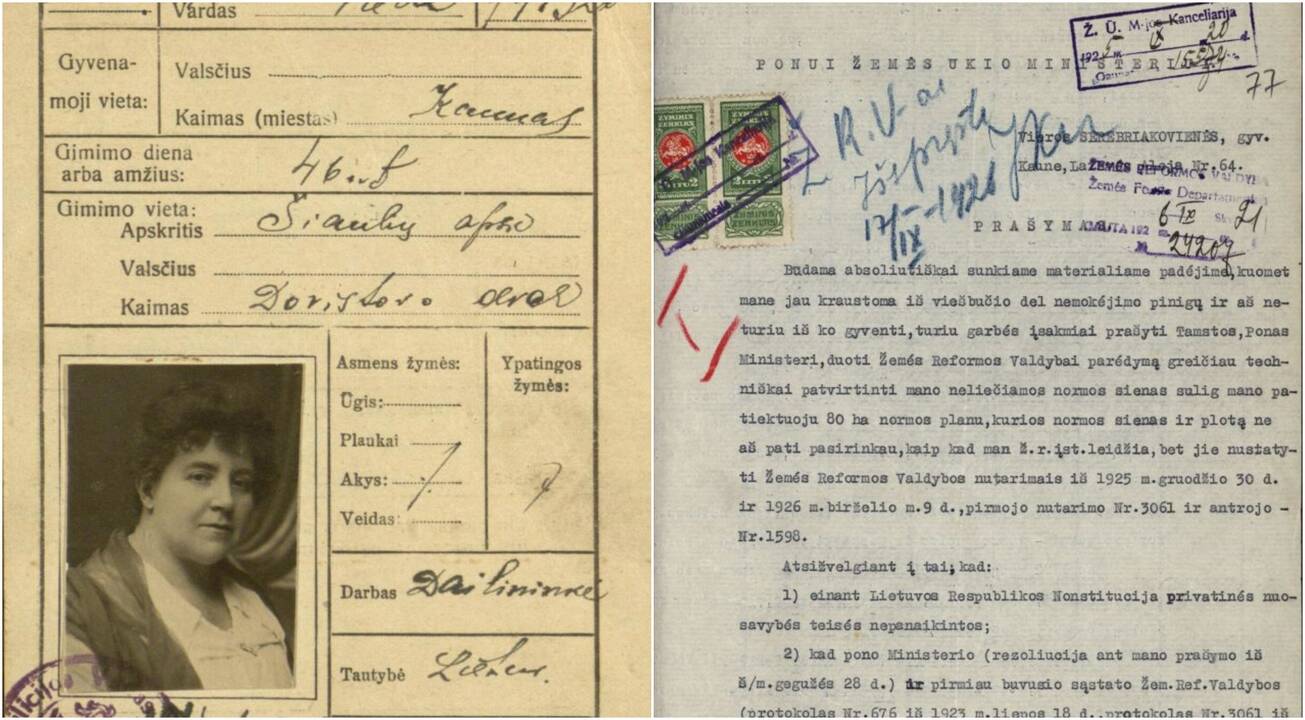 Vardas
Gyvena-
moji vieta:
Valsčius
Kaimas (miestas) Kaunas
Gimimo diena
arba amžius: 46 m.
Gimimo vieta:
Apskritis Šiaulių apsk
Valsčius
Kaimas dvar
Asmens žymės:
Ūgis:
Plaukai
Akys:
Veidas:
Ypatingos
žymės:
Darbas Dailininkė
Tautybė Lietuv.
Ž. Ū. M-jos Kanceliarija
192
77
PONUI ŽEMĖS UKIO MINISTERIUI.
ŽYMINIS
ŽENKLAS
ŽYMINIS
ŽENKLAS
R.V-ai
Išspręsti
17/IX-1926
Vieros SEREBRIAKOVIENĖS, gyv.
Kaune, Alėja Nr.64.
ŽEMĖS REFORMOS VALDYBA
Žemės Fondo Departamentas
GAUTA 192
PRAŠYMAS
Budama absoliutiškai sunkiame materialiame padėjime,kuomet
mane jau kraustoma iš viešbučio del nemokėjimo pinigų ir aš ne-
turiu iš ko gyventi,turiu garbės įsakmiai prašyti Tamstos,Ponas
Ministeri,duoti Žemės Reformos Valdybai parėdymą greičiau tech-
niškai patvirtinti mano neliečiamos normos sienas sulig mano pa-
tiektuoju 80 ha normos planu,kurios normos sienas ir plotą ne
aš pati pasirinkau,kaip kad man ž.r.įst.leidžia,bet jie nustaty-
ti Žemės Reformos Valdybos nutarimais iš 1925 m.gruodžio 30 d.
ir 1926 m.birželio m.9 d.,pirmojo nutarimo Nr.3061 ir antrojo -
Nr.1598.
Atsižvelgiant į tai,kad:
1) einant Lietuvos Respublikos Nonstitucija privatinės nuo-
savybės teisės nepanaikintos;
2) kad pono Ministerio (rezoliucija ant mano prašymo iš
š/m.gegužės 28 d.) ir pirmiau buvusio sąstato Žem.Ref.Valdybos
(protokolas Nr.676 iš 1923 m.liepos 18 d.,protokolas Nr.3061 iš